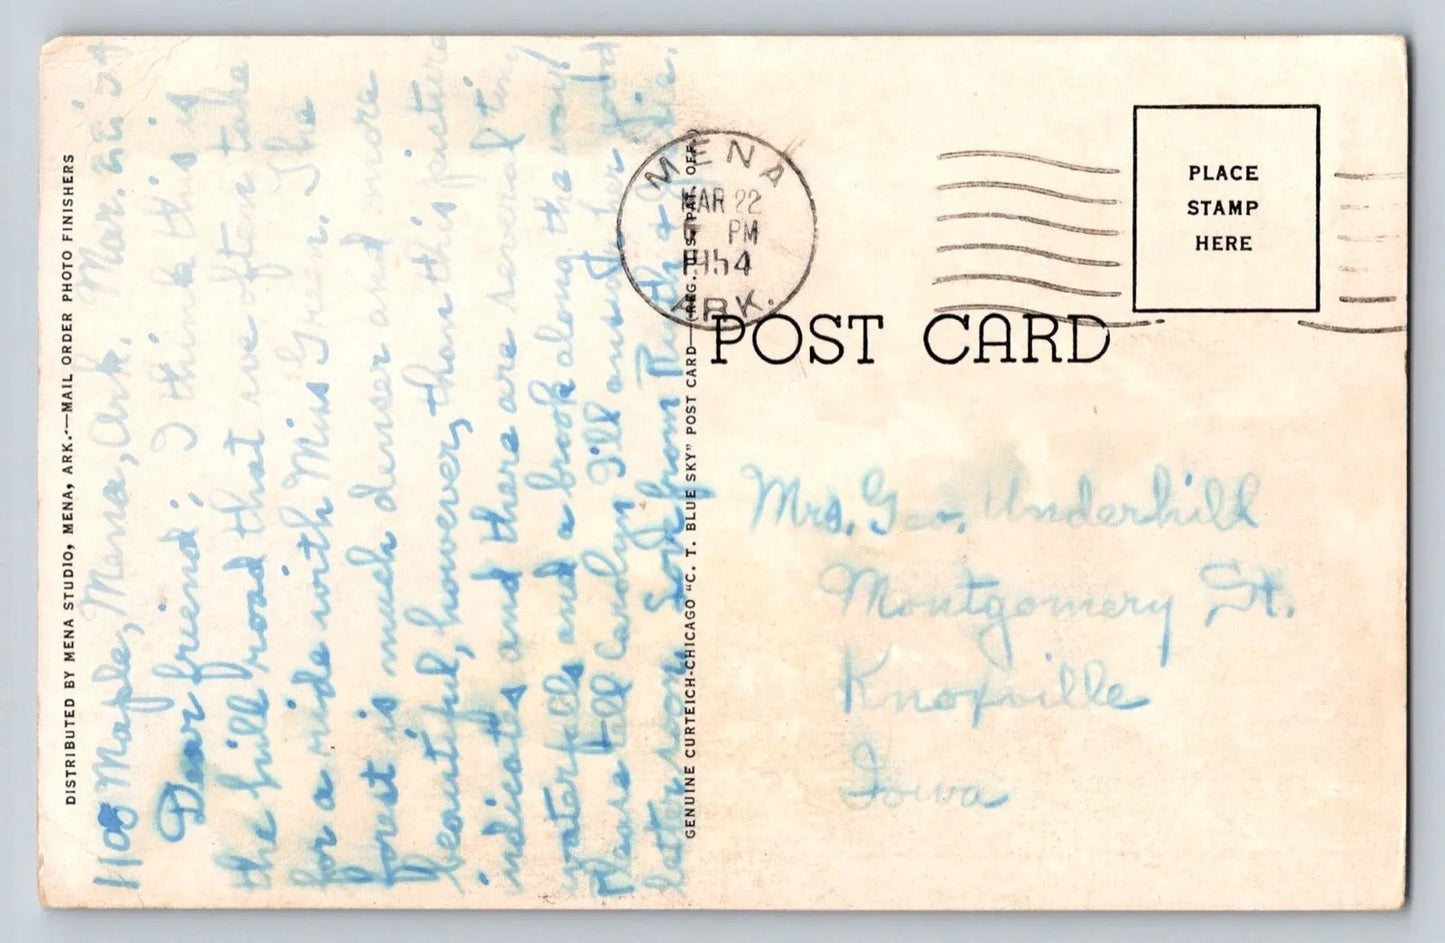 DISTRIBUTED BY MENA STUDIO, MENA, ARK.—MAIL ORDER PHOTO FINISHERS
1108 Maple, Mena, Ark. Mar.
Dear friend; I think this is
the hill road that we often take
for a ride with Miss Green. The
forest is much denser and more
beautiful, however, than this picture
indicates and there are several
waterfalls and a brook along the way.
Please tell Carolyn I'll answer her
letter soon. Love from Ruth &
GENUINE CURTEICH-CHICAGO "C. T. BLUE SKY" POST CARD—(REG. U.S. PAT. OFF.)
MENA
MAR 22
PM
1954
ARK.
PLACE
STAMP
HERE
POST CARD
Mrs. Geo. Underhill
Montgomery St.
Knoxville
Iowa